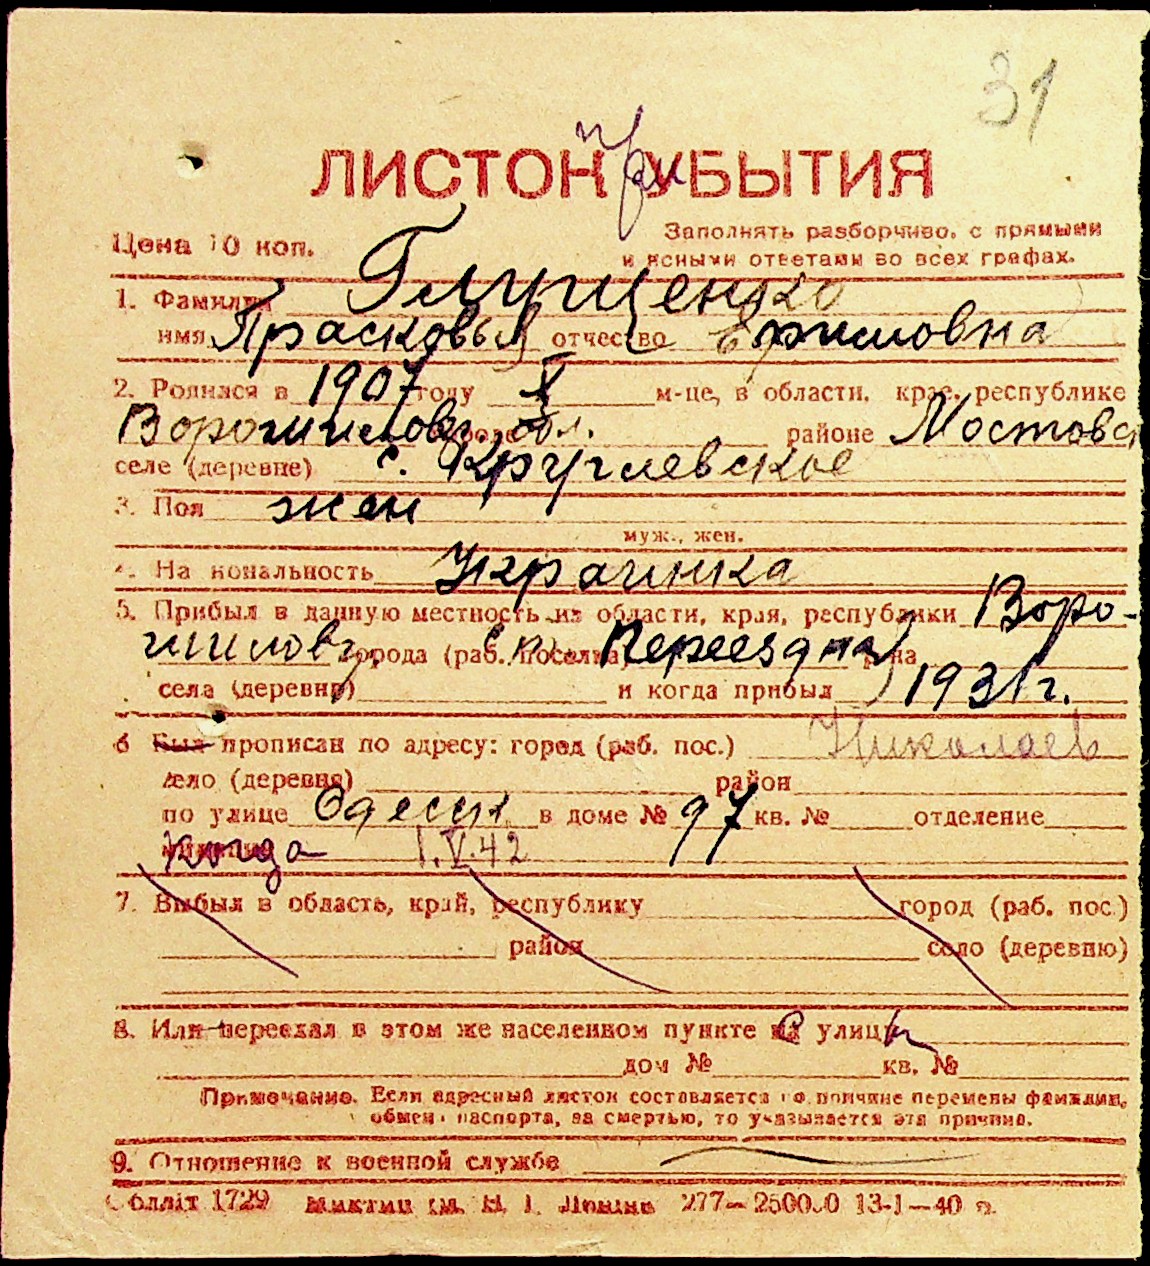 31
при
ЛИСТОК УБЫТИЯ
Цена 10 коп.
Заполнять разборчиво, с прямыми
и ясными ответами во всех графах.
1. Фамилия Глущенко
имя Прасковья отчество Ефимовна
2. Родился в 1907 году X м-це, в области, крае, республике
Ворошиловг. обл. районе Мостовск
селе (деревне) с. Круглевское
3. Пол жен
муж., жен.
4. Национальность Украинка
5. Прибыл в данную местность из области, края, республики Воро-
шиловг. города (раб. поселка) Переездна р-на
села (деревни) и когда прибыл 1931 г.
6 Был прописан по адресу: город (раб. пос.) Николаев
село (деревня) район
по улице Одесск в доме № 97 кв. № отделение
когда 1.V.42
7. Выбыл в область, край, республику город (раб. пос.)
район село (деревню)
8. Или переехал в этом же населенном пункте с улицы
дом № кв. №
Примечание. Если адресный листок составляется по причине перемены фамилии,
обмена паспорта, за смертью, то указывается эта причина.
9. Отношение к военной службе
Обллiт 1729 277— 13-I—40 р.